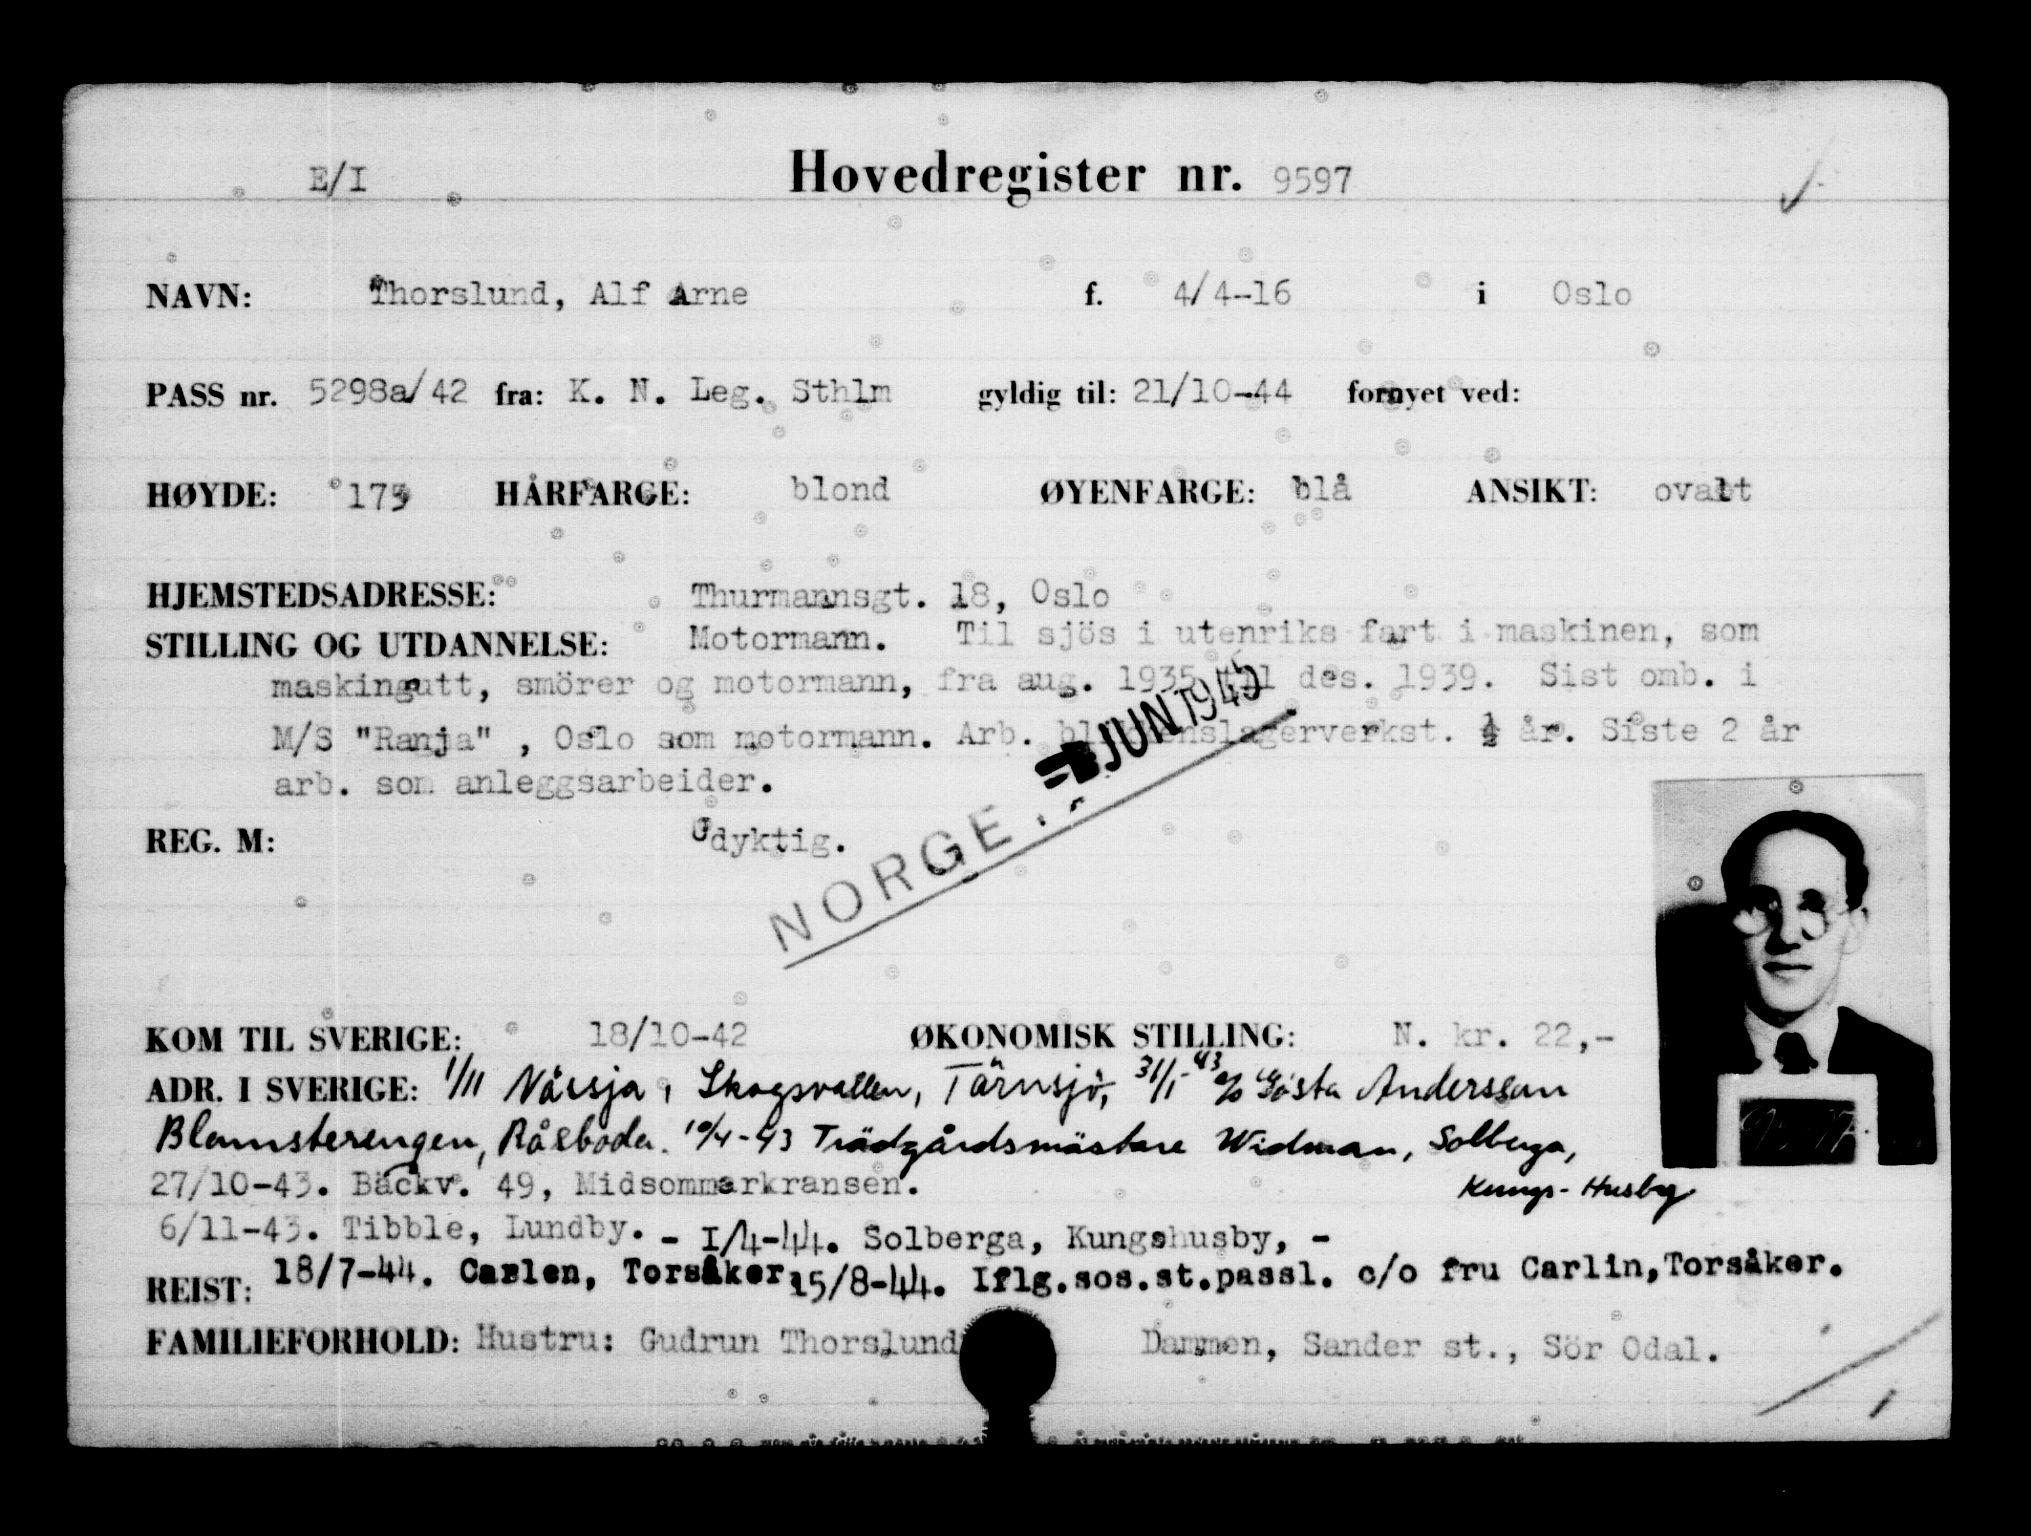 E/I Hovedregister nr. 9597
NAVN: Thorslund, Alf Arne f. 4/4-16 i Oslo
PASS nr. 5298a/42 fra: K. N. Leg. Sthlm gyldig til: 21/10-44 fornyet ved:
HØYDE: 173 HÅRFARGE: blond ØYENFARGE: blå ANSIKT: ovalt
HJEMSTEDSADRESSE: Thurmannsgt. 18, Oslo
STILLING OG UTDANNELSE: Motormann. Til sjös i utenriks fart i maskinen, som
maskingutt, smörer og motormann, fra aug. 1935 til des. 1939. Sist omb. i
M/S "Ranja" , Oslo som motormann. Arb. ½ år. Siste 2 år
arb. som anleggsarbeider.
REG. M: Udyktig.
NORGE. JUN 1945
KOM TIL SVERIGE: 18/10-42 ØKONOMISK STILLING: N. kr. 22,-
ADR. I SVERIGE: 1/11 Nässja, Skogsvallen, Tärnsjö, 31/1-43 c/o Gösta Andersson
Blomsterengen, Råsboda. 10/4-43 Trädgårdsmästare Widman, Solberga,
Kungs-Husby
27/10-43. Bäckv. 49, Midsommarkransen.
6/11-43. Tibble, Lundby. - I/4-44. Solberga, Kungshusby, -
REIST: 18/7-44. Carlen, Torsåker 15/8-44. Iflg.sos.st.passl. c/o fru Carlin, Torsåker.
FAMILIEFORHOLD: Hustru: Gudrun Thorslund Dammen, Sander st., Sör Odal.